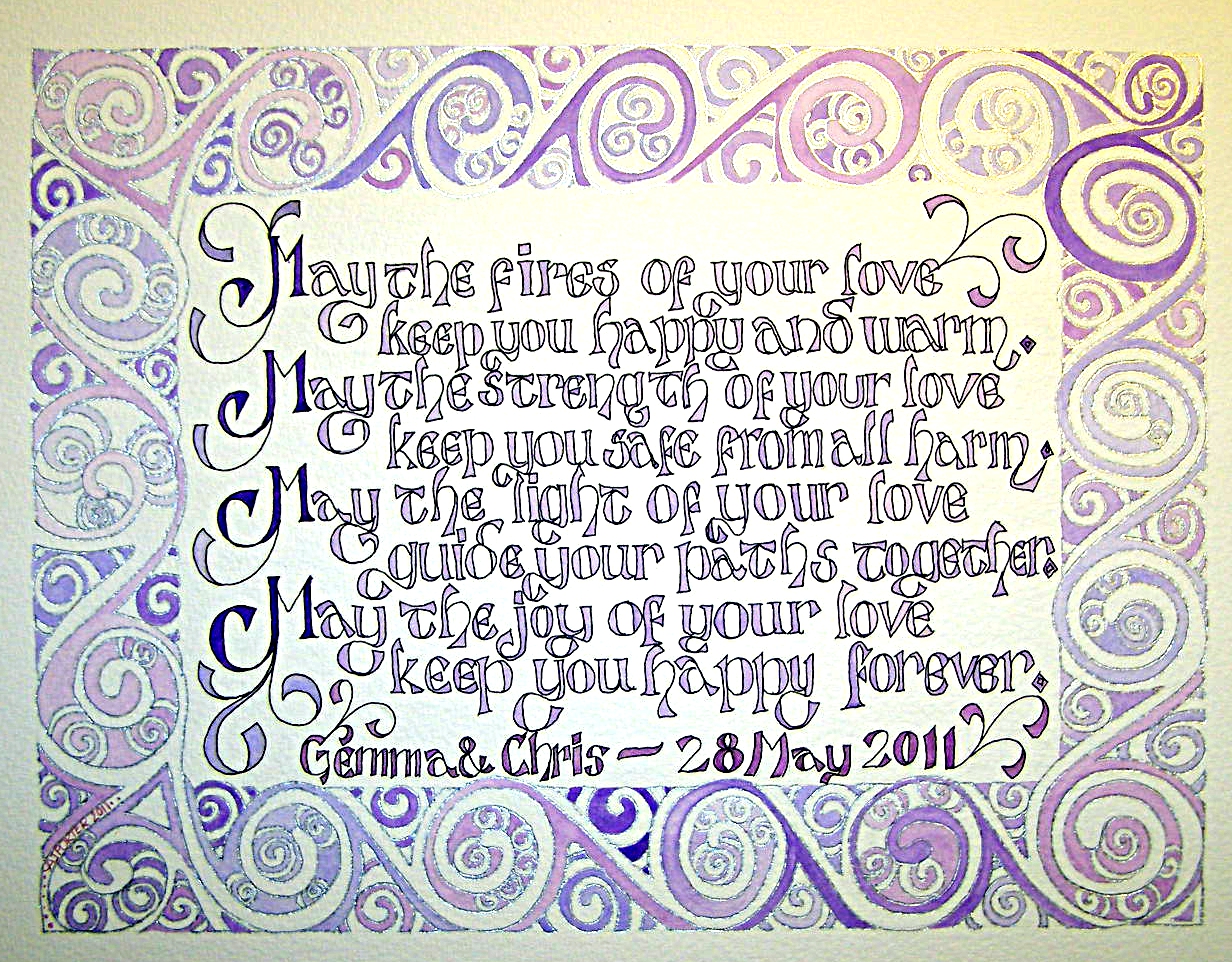 May the fires of your love
keep you happy and warm.
May the strength of your love
keep you safe from all harm.
May the light of your love
guide your paths together.
May the joy of your love
keep you happy forever.
Gemma & Chris — 28 May 2011
2011